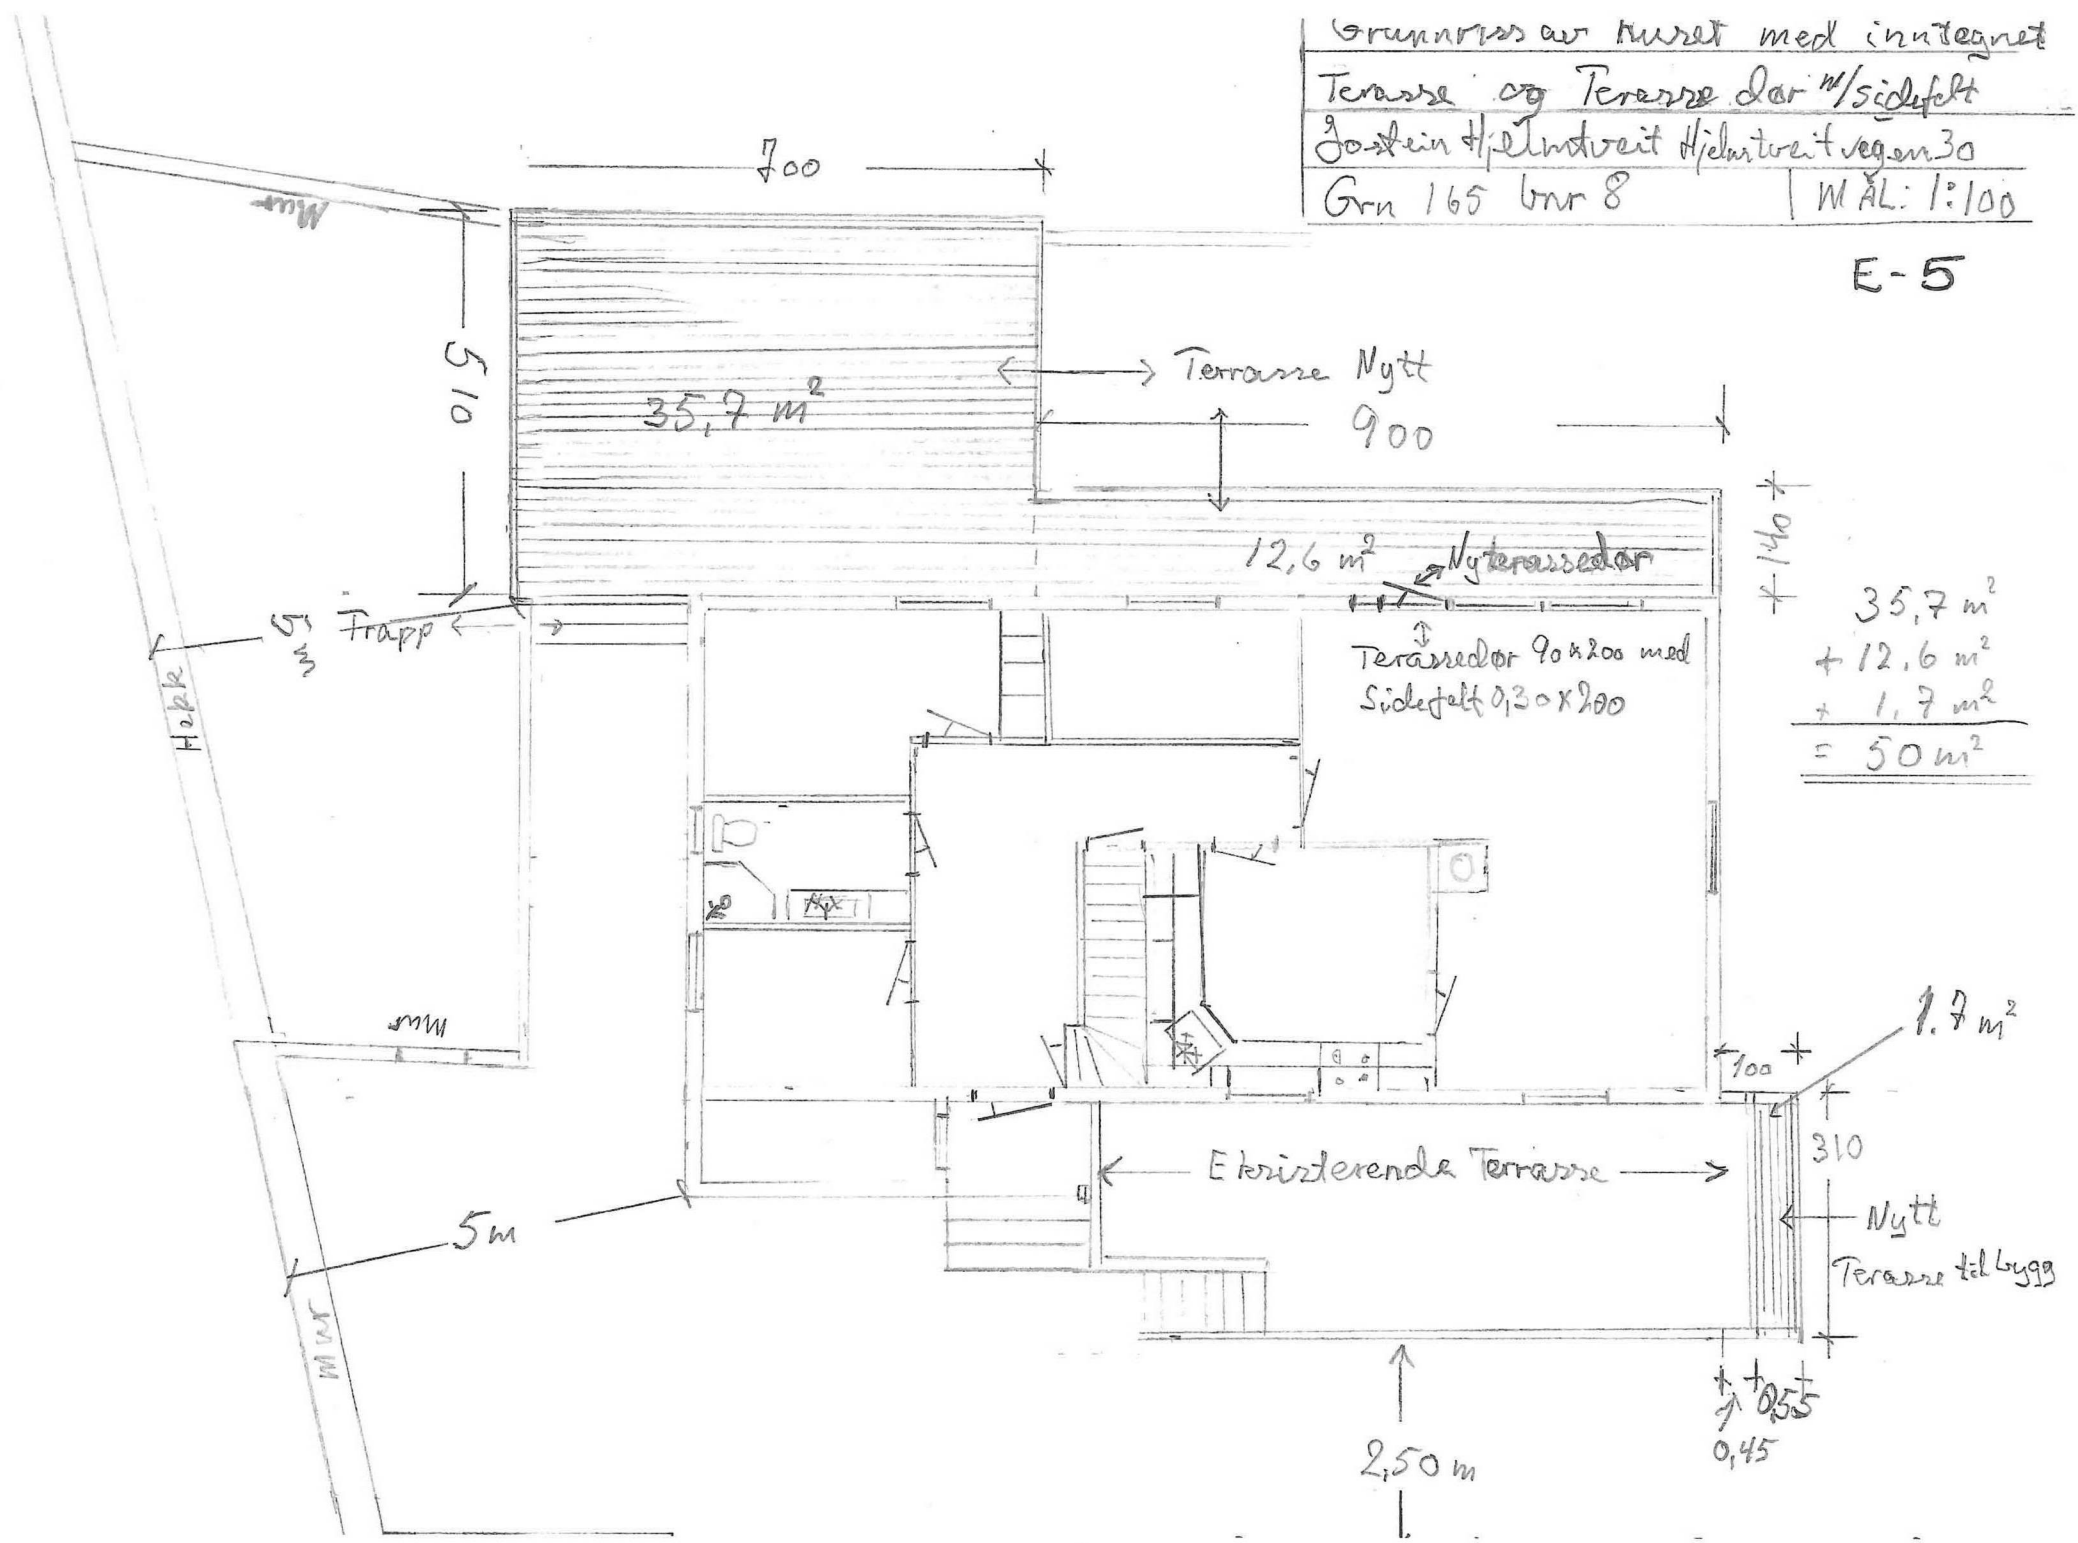 Grunnriss av Huset med inntegnet
Terasse og Terasse dør m/sidefelt
Jostein Hjelmtveit Hjelmtveitvegen 30
Grn 165 bnr 8
MÅL: 1:100
E-5
700
Mur
510
35,7 m²
Terrasse Nytt
900
140
12,6 m²
Ny terassedør
5 m
Trapp
Hekk
Terassedør 90x200 med
Sidefelt 0,30x200
35,7 m²
+ 12,6 m²
+ 1,7 m²
= 50 m²
mur
1.7 m²
100
310
Eksisterende Terrasse
Nytt
Terasse tilbygg
5m
mur
0,55
0,45
2,50 m